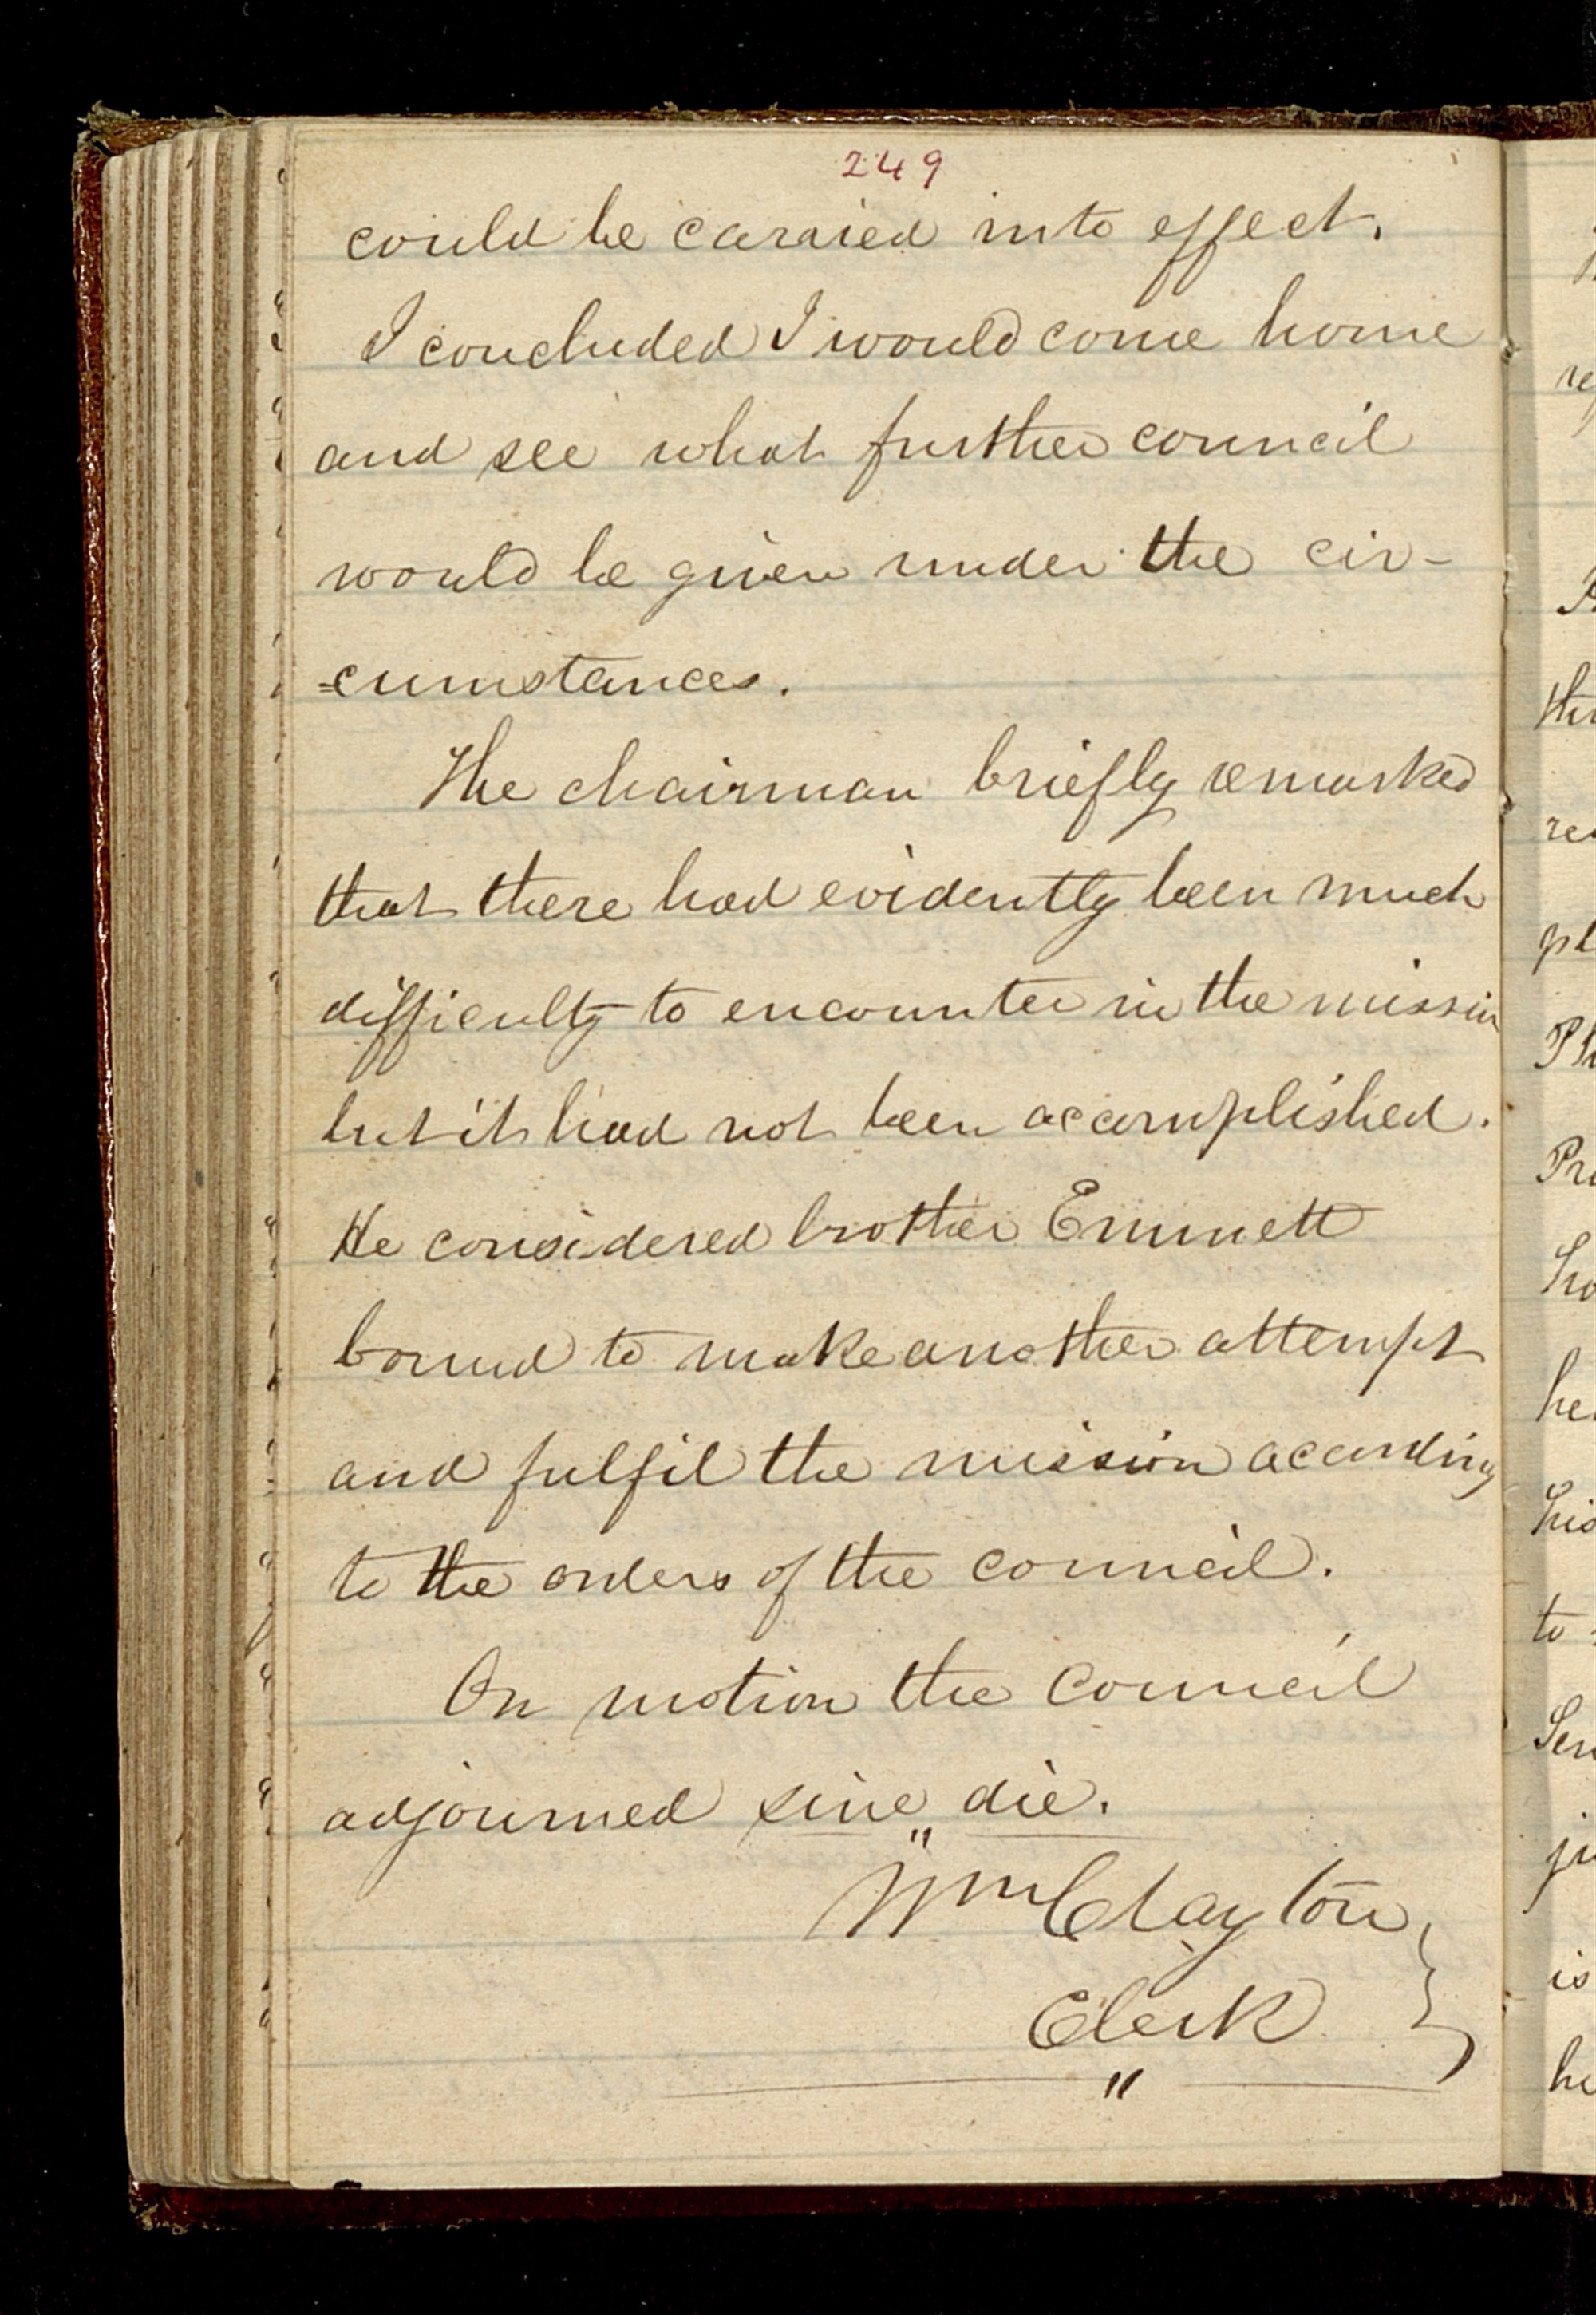 249
could be carried into effect.
I concluded I would come home
and see what further council
would be given under the cir-
=cumstances.
The chairman briefly remarked
that there had evidently been much
difficulty to encounter in the mission
but it had not been accomplished.
He considered brother Emmett
bound to make another attempt
and fulfil the mission according
to the orders of the council.
On motion the council
adjourned sine die.
Wm Clayton
Clerk